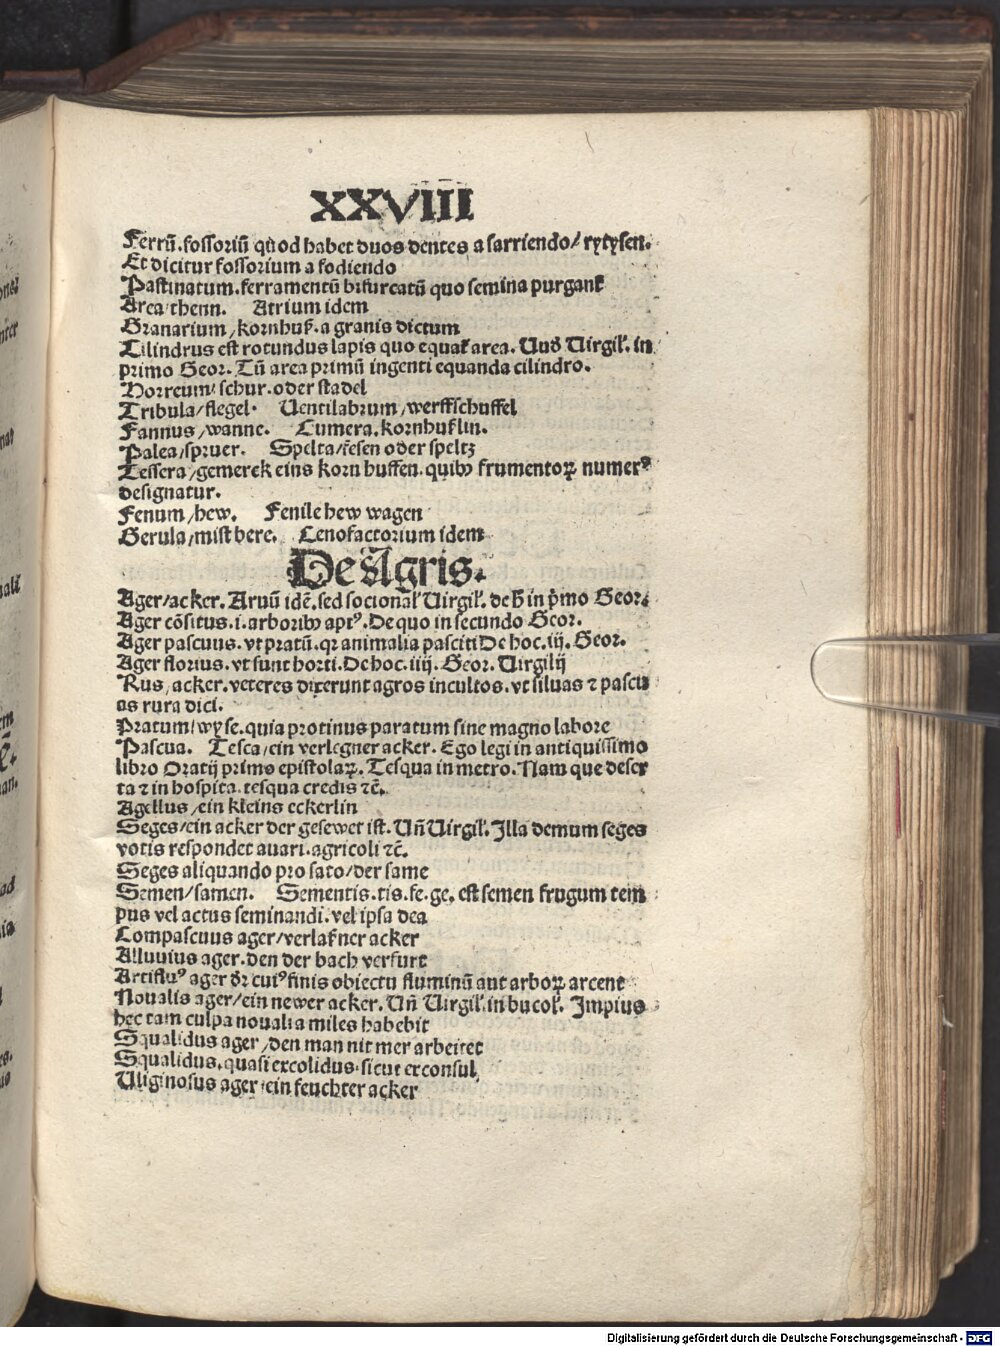 XXVIII
Ferrũ. fossoriũ quod habet duos dentes a sarriendo/ rytysen.
Et dicitur fossorium a fodiendo
Pastinatum. ferramentũ bifurcatũ quo semina purgant
Area/ thenn. Atrium idem
Granarium/ kornhuß. a granis dictum
Cilindrus est rotundus lapis quo equat area. Vnd Virgil. in
primo Geor. Tũ area primũ ingenti equanda cilindro.
Horreum/ schur. oder stadel
Tribula/ flegel. Ventilabrum/ werffschuffel
Fannus/ wanne. Cumera. kornhußlin.
Palea/ spruer. Spelta/ fesen oder speltz
Tessera/ gemerck eins korn huffen. quibꝰ frumentoꝝ numerꝰ
designatur.
Fenum/ hew. Fenile hew wagen
Gerula/ mist bere. Cenofactorium idem
De Agris.
Ager/ acker. Aruũ idẽ. sed socional Virgil. de h̄ in p̃mo Geor.
Ager cõsitus. i. arboribꝰ aptꝰ. De quo in secundo Geor.
Ager pascuus. vt pratũ. qr animalia pasciti De hoc. iij. Geor.
Ager florius. vt sunt horti. De hoc. iiij. Geor. Virgilij
Rus/ acker. veteres dixerunt agros incultos. vt siluas ⁊ pascu
as rura dici.
Pratum/ wyse. quia protinus paratum sine magno labore
Pascua. Tesca/ ein verlegner acker. Ego legi in antiquissimo
libro Oratij primo epistolaꝝ. Tesqua in metro. Nam que deser
ta ⁊ in hospita. tesqua credis ⁊c̃.
Agellus/ ein kleins eckerlin
Seges/ ein acker der gesewet ist. Vñ Virgil. Illa demum seges
votis respondet auari. agricoli ⁊c̃.
Seges aliquando pro sato/ der same
Semen/ samen. Sementis. tis. fe. ge. est semen frugum tem
pus vel actus seminandi. vel ipsa dea
Compascuus ager/ verlaßner acker
Alluuius ager. den der bach verfurt
Artifluꝰ ager dr̃ cuiꝰ finis obiectu fluminũ aut arboꝝ arcent
Noualis ager/ ein newer acker. Vñ Virgil. in bucol. Impius
hec tam culpa noualia miles habebit
Squalidus ager/ den man nit mer arbeitet
Squalidus. quasi excolidus. sicut exconsul
Vliginosus ager ein feuchter acker
Digitalisierung gefördert durch die Deutsche Forschungsgemeinschaft - DFG